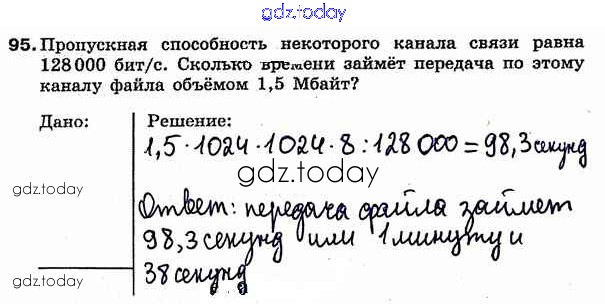 gdz.today
95. Пропускная способность некоторого канала связи равна
128 000 бит/с. Сколько времени займёт передача по этому
каналу файла объёмом 1,5 Мбайт?
Дано:
Решение:
1,5 · 1024 · 1024 · 8 : 128 000 = 98,3 секунд
gdz.today
gdz.today
Ответ: передача файла займет
98,3 секунд или 1 минуту и
38 секунд
gdz.today
gdz.today